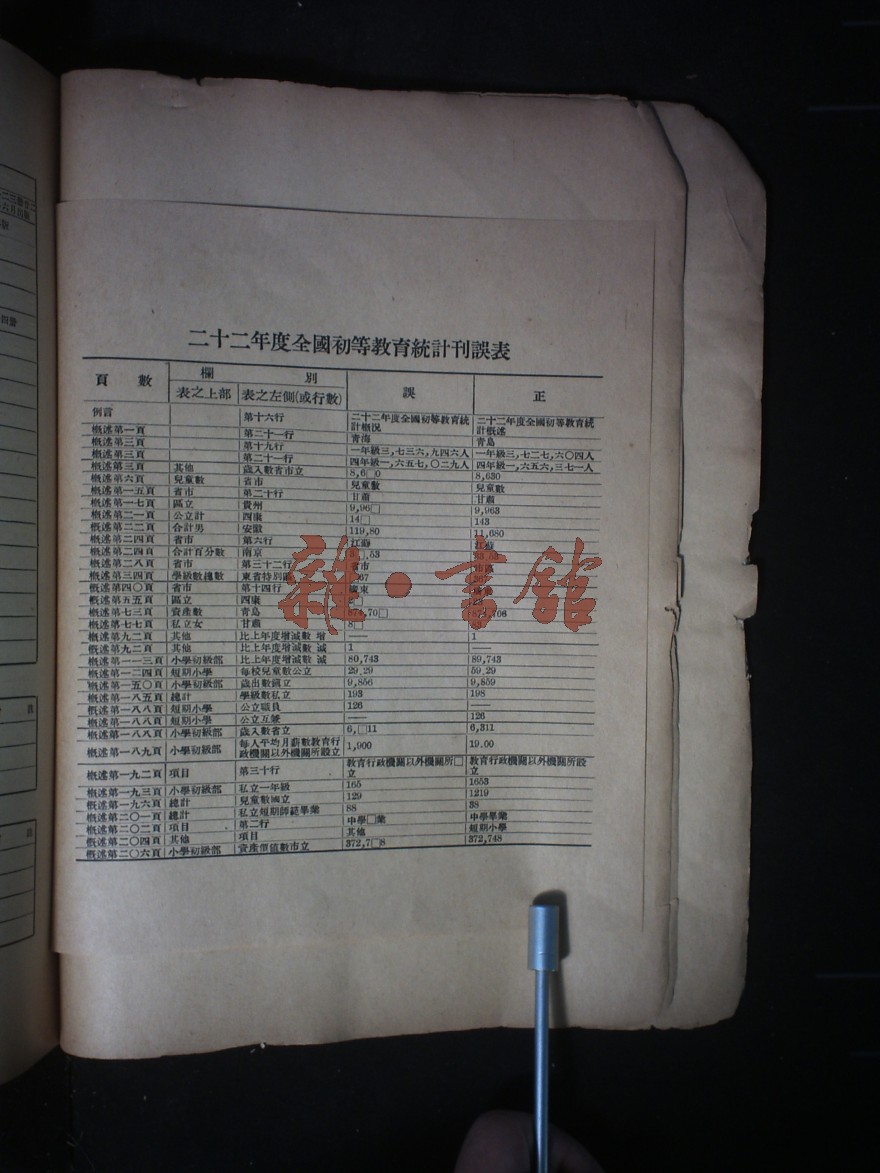 二十二年度全國初等教育統計刊誤表
頁 數 欄 別 誤 正
表之上部 表之左側(或行數)
例言 第十六行 二十二年度全國初等教育統計概況 二十二年度全國初等教育統計概述
概述第一頁 第二十一行 青海 青島
概述第三頁 第十九行 一年級三,七三六,九四六人 一年級三,七二七,六〇四人
概述第三頁 第二十一行 四年級一,六五七,〇二九人 四年級一,六五六,三七一人
概述第三頁 其他 歲入數省市立 8,6□0 8,630
概述第六頁 兒童數 省市 兒童數 兒童數
概述第一五頁 省市 第二十行 甘肅 甘肅
概述第一七頁 區立 貴州 9,96□ 9,963
概述第二一頁 公立計 西康 14□ 143
概述第二二頁 合計男 安徽 119,80 11,680
概述第二四頁 省市 第六行 江蘇 江蘇
概述第二四頁 合計百分數 南京 □.53
概述第二八頁 省市 第三十二行 省市
概述第三四頁 學級數總數 東省特別區
概述第四〇頁 省市 第十四行 廣東
概述第五五頁 區立 西康
概述第七三頁 資產數 青島
概述第七七頁 私立女 甘肅 8□
概述第九二頁 其他 比上年度增減數 增 —— 1
概述第九二頁 其他 比上年度增減數 減 1 —
概述第一一三頁 小學初級部 比上年度增減數 減 80,743 89,743
概述第一二四頁 短期小學 每校兒童數公立 29.29 59.29
概述第一五〇頁 小學初級部 歲出數鎮立 9,856 9,859
概述第一八五頁 總計 學級數私立 193 198
概述第一八八頁 短期小學 公立職員 126 ——
概述第一八八頁 短期小學 公立互兼 —— 126
概述第一八八頁 小學初級部 歲入數省立 6,□11 6,311
概述第一八九頁 小學初級部 每人平均月薪數教育行政機關以外機關所設立 1,900 19.00
概述第一九二頁 項目 第三十行 教育行政機關以外機關所□立 教育行政機關以外機關所設立
概述第一九三頁 小學初級部 私立一年級 165 1653
概述第一九六頁 總計 兒童數國立 129 1219
概述第二〇一頁 總計 私立短期師範畢業 88 38
概述第二〇二頁 項目 第二行 中學□業 中學畢業
概述第二〇四頁 其他 項目 其他 短期小學
概述第二〇六頁 小學初級部 資產價值數市立 372,7□8 372,748
雜·書館